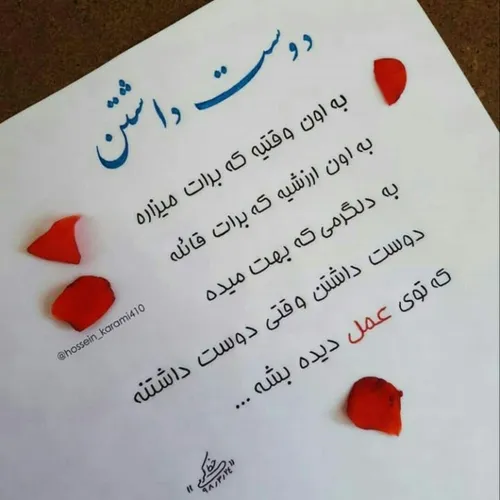 دوست داشتن
به اون وقتیه که برات میزاره
به اون ارزشیه که برات قائله
به دلگرمی که بهت میده
دوست داشتن وقتی دوست داشتنه
که توی عمل دیده بشه ...
@hossein_karami410
۹۸/۳/۲۴